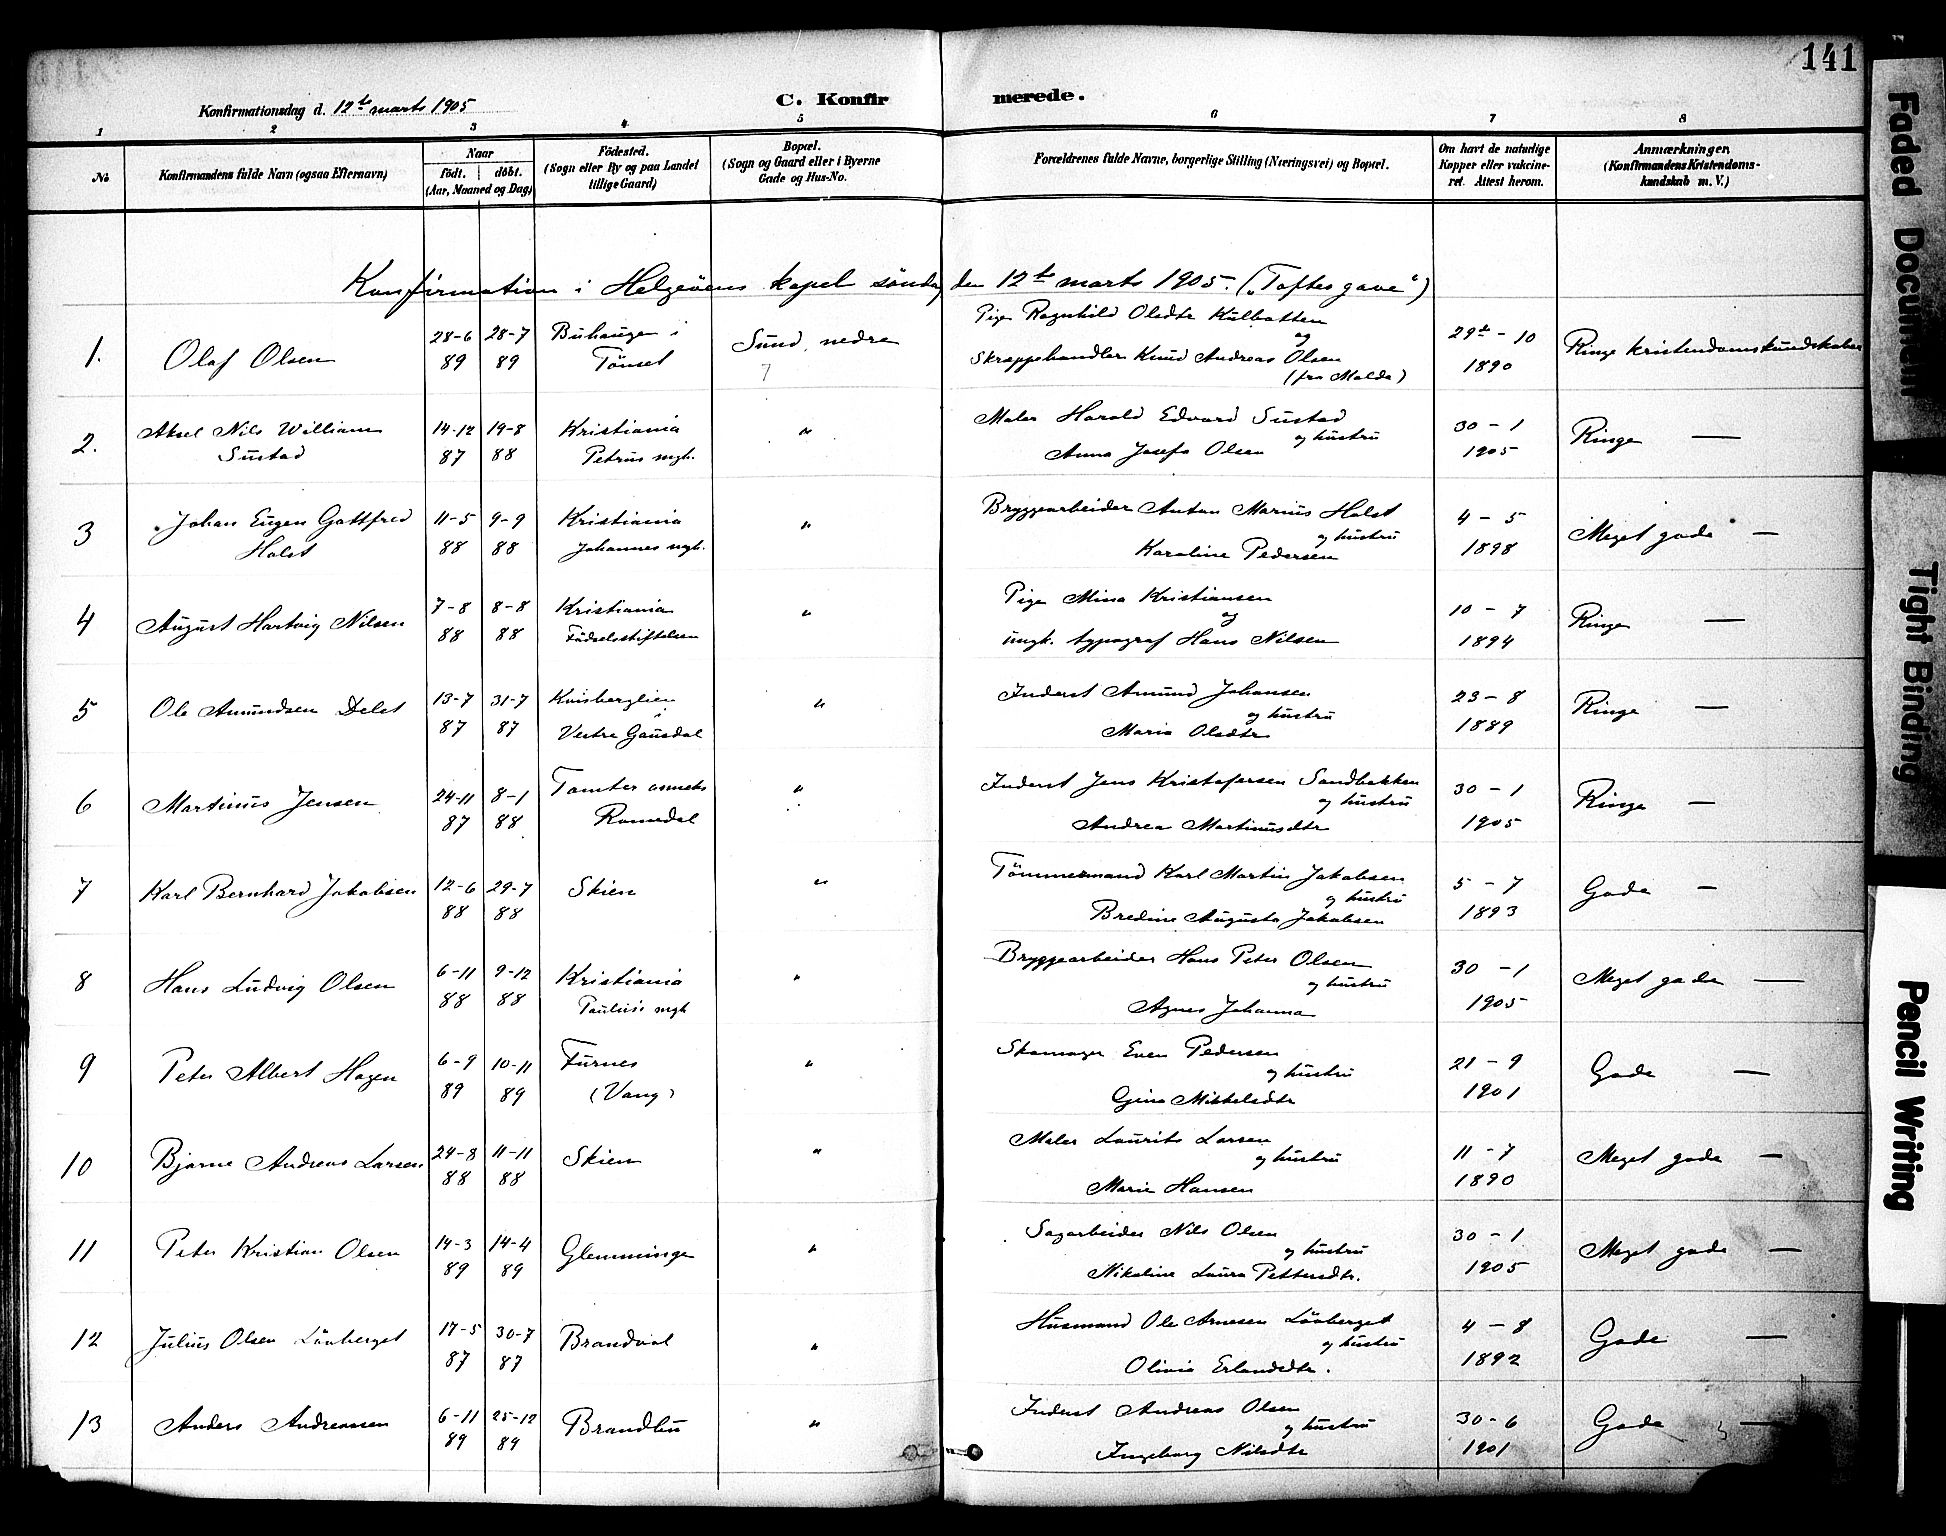 141
Konfirmationsdag d. 12te marts 1905
C. Konfirmerede.
1 2 3 4 5 6 7 8
No.
Konfirmandens fulde Navn (ogsaa Efternavn)
Naar
født. døbt.
(Aar, Maaned og Dag)
Fødested.
(Sogn eller By og paa Landet
tillige Gaard)
Bopæl.
(Sogn og Gaard eller i Byerne
Gade og Hus-No.
Forældrenes fulde Navne, borgerlige Stilling (Næringsvei) og Bopæl.
Om havt de naturlige
Kopper eller vakcine-
ret. Attest herom.
Anmærkninger.
(Konfirmandens Kristendoms-
kundskab m. V.)
Konfirmation i Helgøens kapel søndag den 12te marts 1905. ("Toftes gave")
1. Olaf Olsen 28-6 89 28-7 89 Buhaugen i Tønset Sund, nedre 7
Pige Ragnhild Olsdtr Kulbotten
og
Skraphandler Knud Andreas Olsen
(fra Molde)
29de - 10 1890 Ringe kristendomskundskaber
2. Aksel Nils William Sustad 14-12 87 19-8 88 Kristiania Petrus mgh. "
Maler Harald Edvard Sustad
og hustru
Anna Josefa Olsen
30 - 1 1905 Ringe —
3 Johan Eugen Gottfred Holst 11-5 88 9-9 88 Kristiania Johannes mgh. "
Bryggearbeider Anton Marius Holst
og hustru
Karoline Pedersen
4 - 5 1898 Meget gode —
4 August Hartvig Nilsen 7-8 88 8-8 88 Kristiania Fødselsstiftelsen "
Pige Mina Kristiansen
og
ungk. typograf Hans Nilsen
10 - 7 1894 Ringe —
5 Ole Amundsen Delet 13-7 87 31-7 87 Knisberglien i Vestre Gausdal "
Inderst Amund Johansen
og hustru
Maria Olsdtr
23 - 8 1889 Ringe —
6 Martinus Jensen 24-11 87 8-1 88 Tomter Romedal "
Inderst Jens Kristofersen Sandbakken
og hustru
Andrea Martinusdtr
30 - 1 1905 Ringe —
7 Karl Bernhard Jakobsen 12-6 88 29-7 88 Skien "
Tømmermand Karl Martin Jakobsen
og hustru
Bredine Augusta Jakobsen
5 - 7 1893 Gode —
8 Hans Ludvig Olsen 6-11 88 9-12 88 Kristiania Paulus's mgh "
Bryggearbeider Hans Peter Olsen
og hustru
Agnes Johanna
30 - 1 1905 Meget gode —
9 Peter Albert Hagen 6-9 89 10-11 89 Furnes (Vang) "
Skomager Even Pedersen
og hustru
Gina Mikkelsdtr
21 - 9 1901 Gode —
10 Bjarne Andreas Larsen 24-8 88 11-11 88 Skien "
Maler Laurits Larsen
og hustru
Marie Hansen
11 - 7 1890 Meget gode —
11 Peter Kristian Olsen 14-3 89 14-4 89 Glemminge "
Sagarbeider Nils Olsen
og hustru
Nikoline Laura Pettersdtr.
30 - 1 1905 Meget gode —
12 Julius Olsen Løvberget 17-5 87 30-7 87 Brandval "
Husmand Ole Arnesen Løvberget
og hustru
Olivia Erlandsdtr.
4 - 8 1892 Gode —
13 Anders Andreassen 6-11 89 25-12 89 Brandbu "
Inderst Andreas Olsen
og hustru
Ingeborg Nilsdtr
30 - 6 1901 Gode —
Faded Document
Tight Binding
Pencil Writing